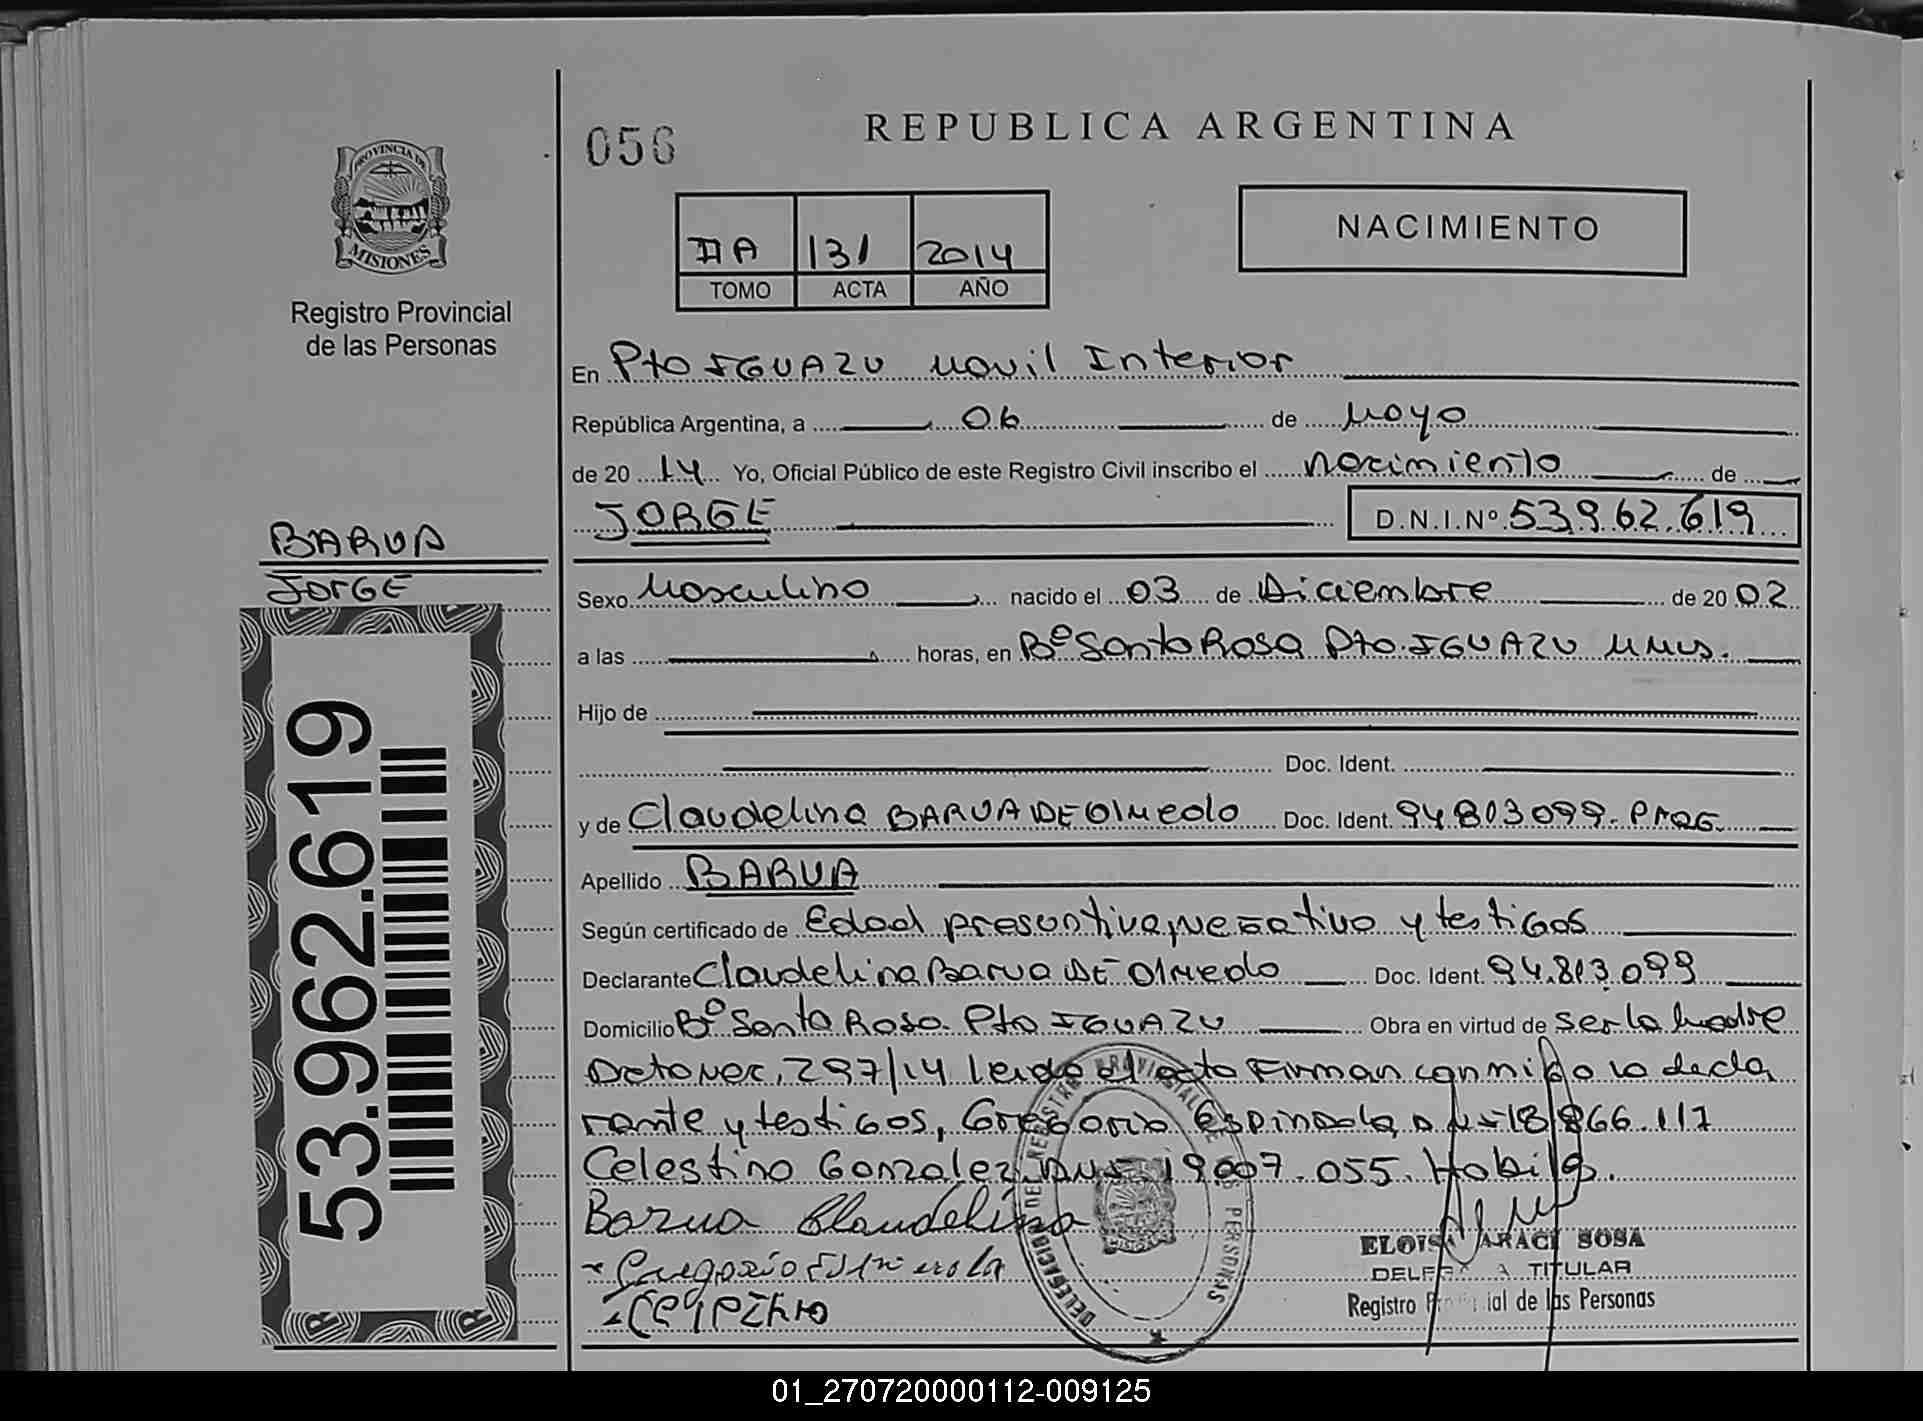 056
REPUBLICA ARGENTINA
PROVINCIA DE
MISIONES
Registro Provincial
de las Personas
IIA 131 2014
TOMO ACTA AÑO
NACIMIENTO
En Pto IGUAZU Movil Interior
República Argentina, a 06 de Mayo
de 2014 Yo, Oficial Público de este Registro Civil inscribo el nacimiento de
JORGE D.N.I.Nº 53.962.619
BARUA
JORGE
Sexo Masculino nacido el 03 de Diciembre de 2002
a las horas, en Bº Santa Rosa Pto. IGUAZU Mnes.
Hijo de
Doc. Ident.
y de Claudelina BARUA DE Olmedo Doc. Ident. 94803099. PRAG.
Apellido BARUA
Según certificado de Edad presuntiva, negativo y testigos
Declarante Claudelina Barua DE Olmedo Doc. Ident. 94.803.099
Domicilio Bº Santa Rosa. Pto IGUAZU Obra en virtud de ser la madre
297/14 leido el acta Firman conmigo la decla
rante y testigos, Gregorio Espinola, DNI 18.866.117
Celestino Gonzalez DNI 19.007.055. Habiles.
Barua Claudelina
Gregorio
ELOISA ARACI SOSA
DELEGADA TITULAR
Registro Provincial de las Personas
DELEGACION DEL REGISTRO PROVINCIAL DE LAS PERSONAS
MISIONES
53.962.619
01_270720000112-009125